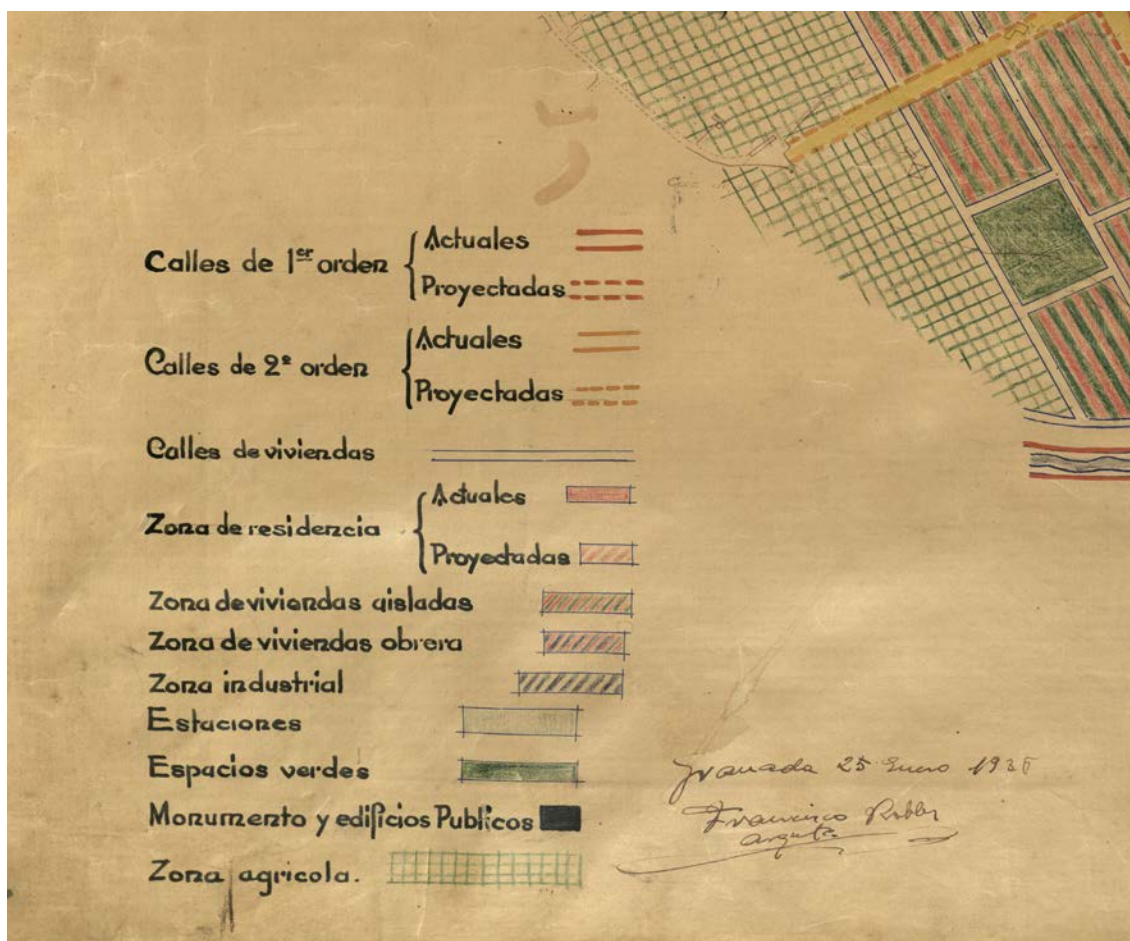 Calles de 1er orden
Actuales
Proyectadas
Calles de 2º orden
Actuales
Proyectadas
Calles de viviendas
Zona de residencia
Actuales
Proyectadas
Zona de viviendas aisladas
Zona de viviendas obrera
Zona industrial
Estaciones
Espacios verdes
Monumento y edificios Publicos
Zona agricola.
Granada 25 Enero 193
Francisco Robles